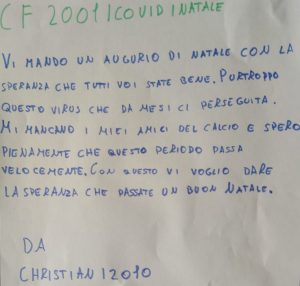 CF 2001/COVID/NATALE
VI MANDO UN AUGURIO DI NATALE CON LA
SPERANZA CHE TUTTI VOI STATE BENE. PURTROPPO
QUESTO VIRUS CHE DA MESI CI PERSEGUITA.
MI MANCANO I MIEI AMICI DEL CALCIO E SPERO
PIENAMENTE CHE QUESTO PERIODO PASSA
VELOCEMENTE. CON QUESTO VI VOGLIO DARE
LA SPERANZA CHE PASSATE UN BUON NATALE.
DA
CHRISTIAN 12010